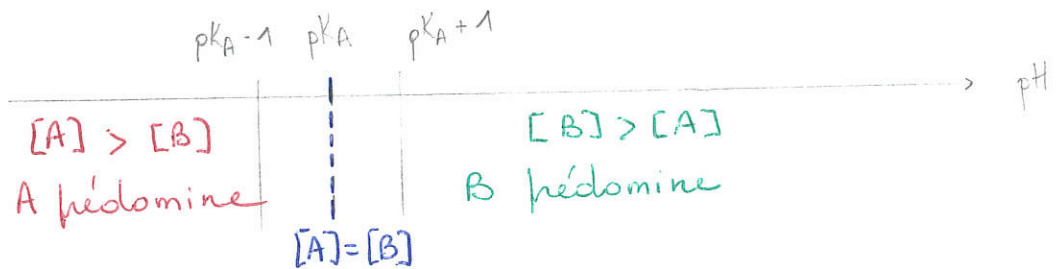 pKA - 1 pKA pKA + 1
pH
[A] > [B] [B] > [A]
A prédomine B prédomine
[A] = [B]